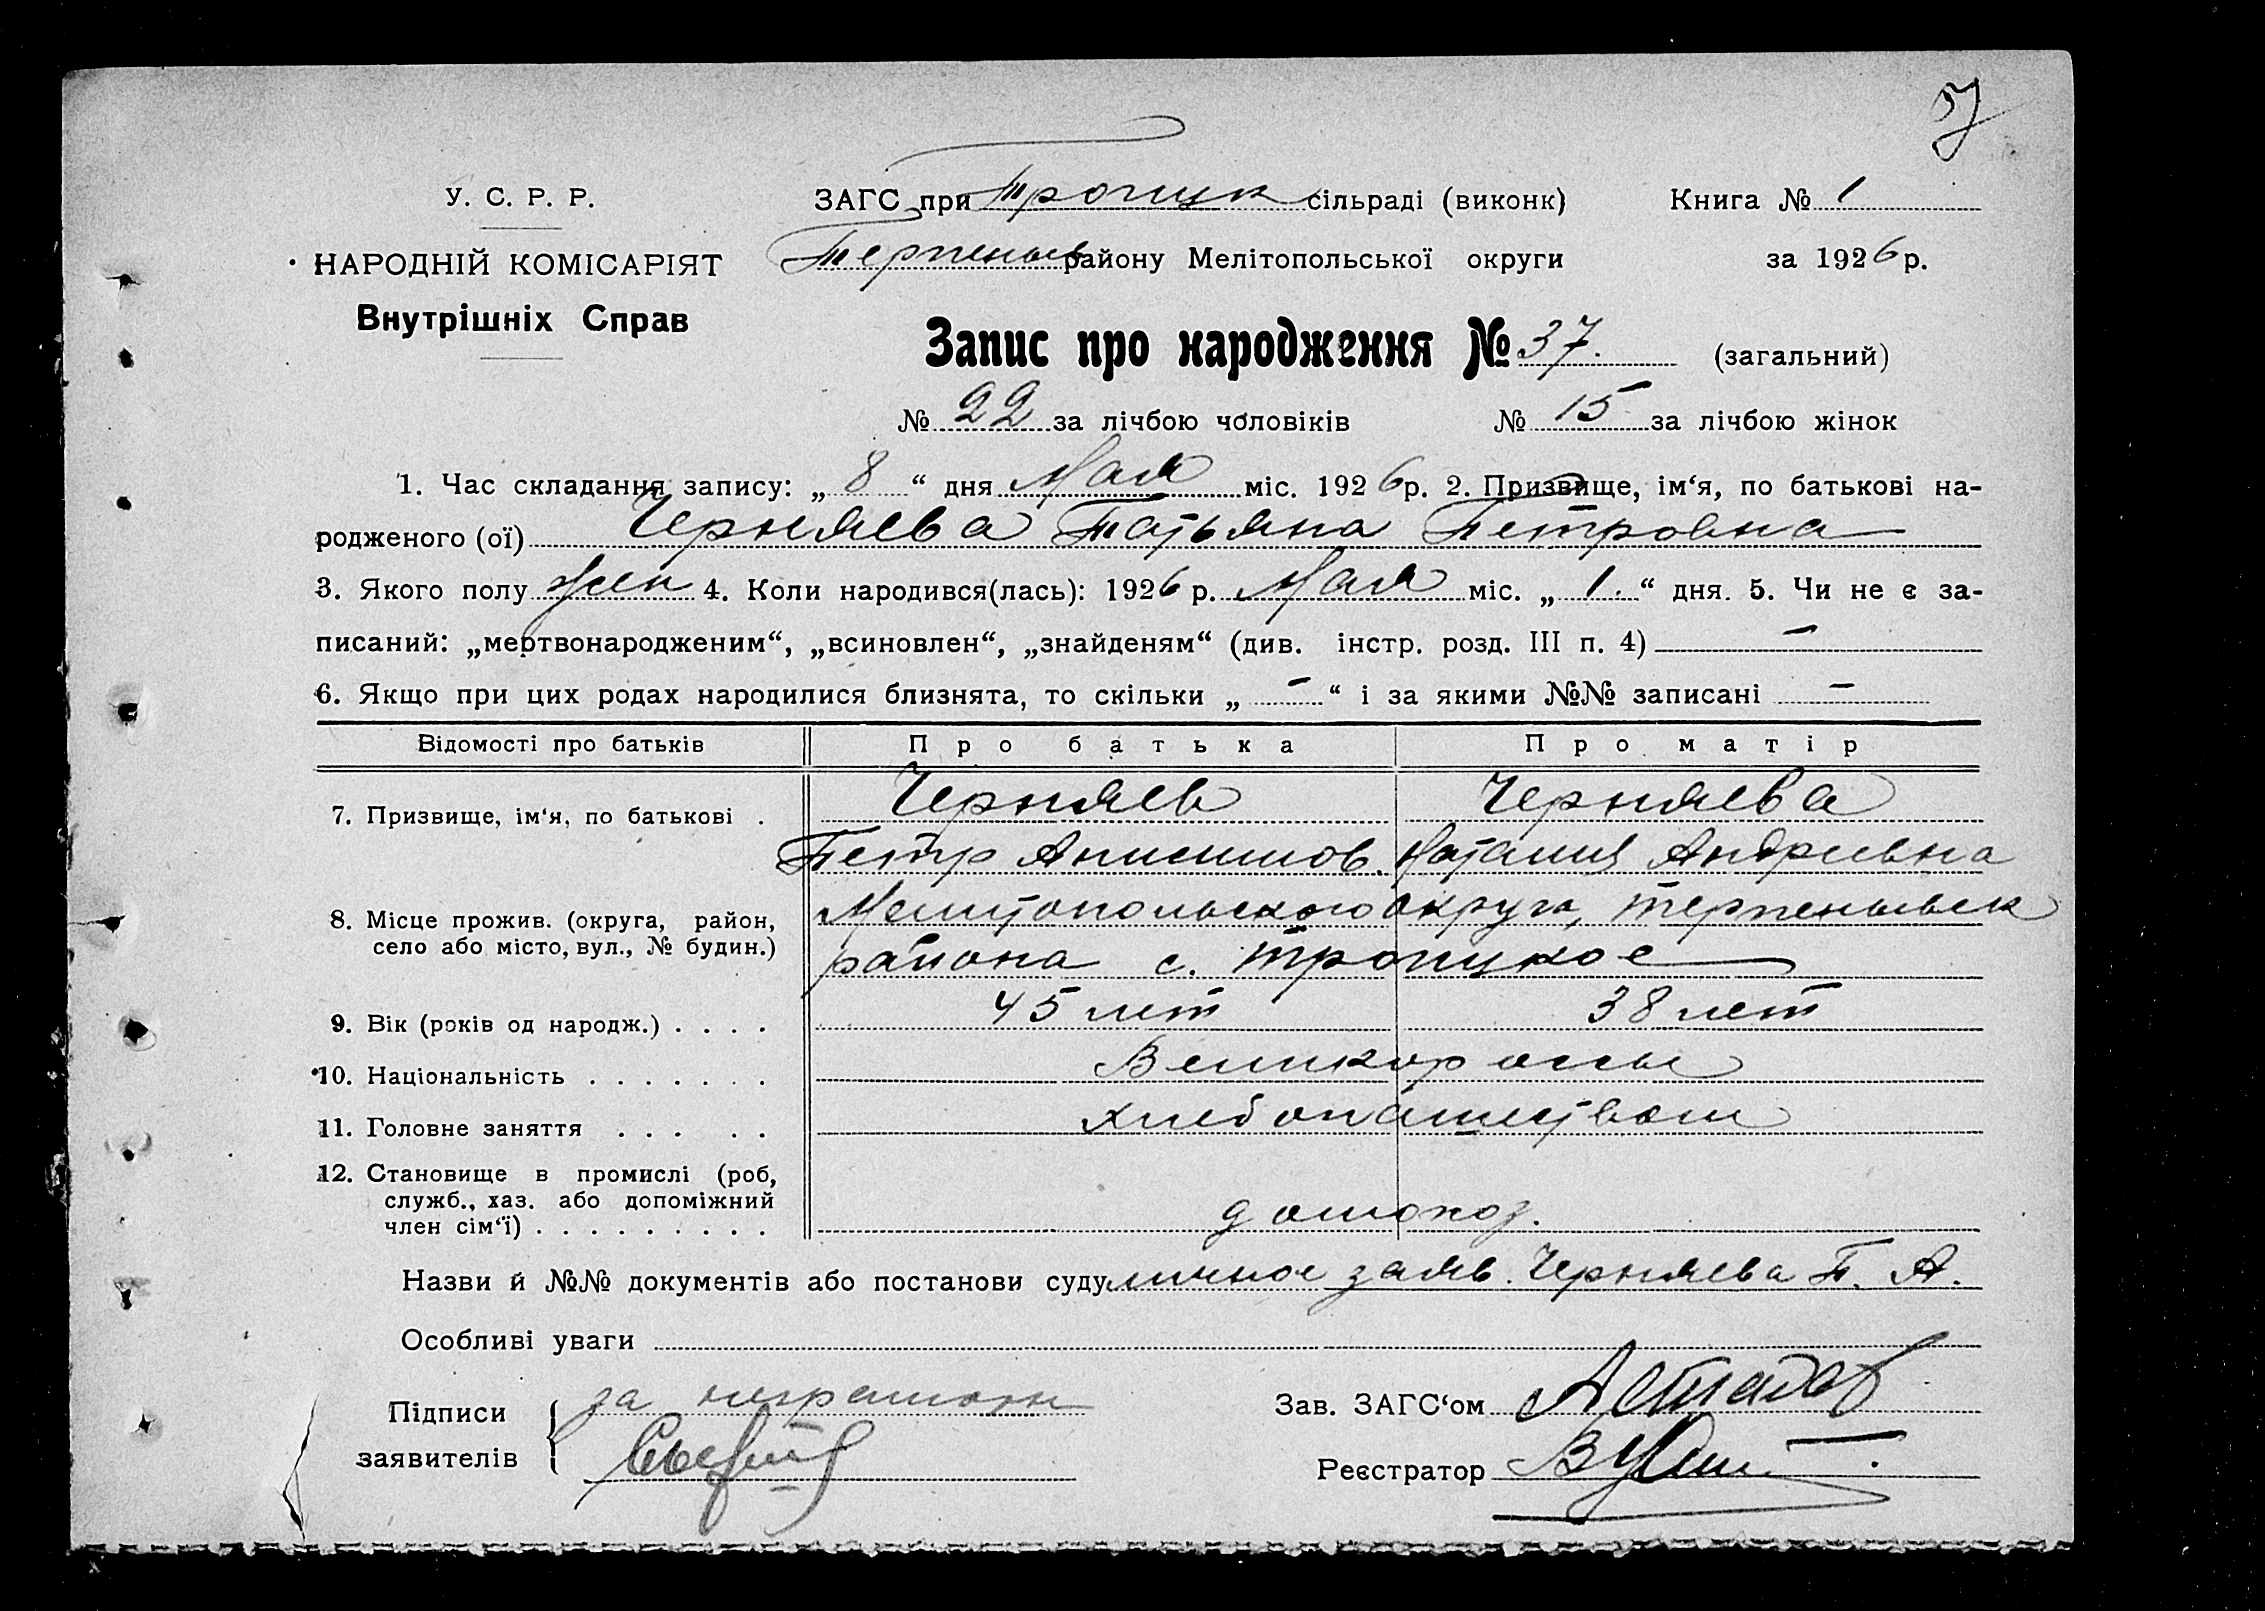 У. С. Р. Р.
НАРОДНІЙ КОМІСАРІЯТ
Внутрішніх Справ
ЗАГС при Троицк сільраді (виконк)
Книга № 1
Терпеньев району Мелітопольської округи
за 1926 р.
Запис про народження № 37. (загальний)
№ 22 за лічбою чоловіків № 15 за лічбою жінок
1. Час складання запису: „ 8 “ дня Мая міс. 1926 р. 2. Призвище, ім‘я, по батькові на-
родженого (ої) Черняева Татьяна Петровна
3. Якого полу жен 4. Коли народився(лась): 1926 р. Мая міс. „ 1. “ дня. 5. Чи не є за-
писаний: „мертвонародженим“, „всиновлен“, „знайденям“ (див. інстр. розд. III п. 4) —
6. Якщо при цих родах народилися близнята, то скільки „ - “ і за якими №№ записані —
Відомості про батьків Про батька Про матір
7. Призвище, ім‘я, по батькові . Черняев Черняева
Петр Анисимов. Наталия Андреевна
8. Місце прожив. (округа, район,
село або місто, вул., № будин.)
Мелитопольского округа, Терпеньевск
района с. Троицкое
9. Вік (років од народж.) . . . . 45 лет 38 лет
10. Національність . . . . . . . Великороссы
11. Головне заняття . . . . . хлебопашеством
12. Становище в промислі (роб,
служб., хаз. або допоміжний
член сім‘ї) . . . . . . . . . домохоз.
Назви й №№ документів або постанови суду личное заяв. Черняева П. А.
Особливі уваги
Підписи
заявителів
за неграмотн
Зав. ЗАГС‘ом
Реєстратор